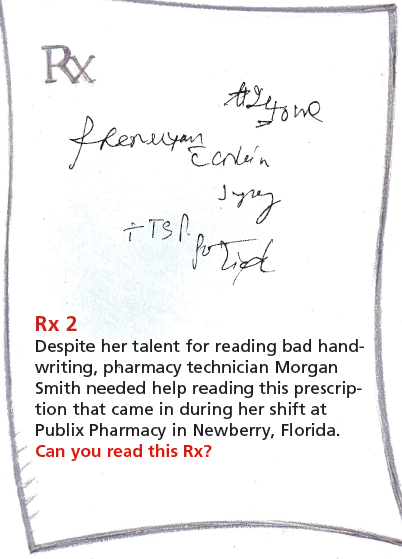 Rx
Phenergan
c codein
Syrup
TSP.
po
Rx 2
Despite her talent for reading bad hand-
writing, pharmacy technician Morgan
Smith needed help reading this prescrip-
tion that came in during her shift at
Publix Pharmacy in Newberry, Florida.
Can you read this Rx?